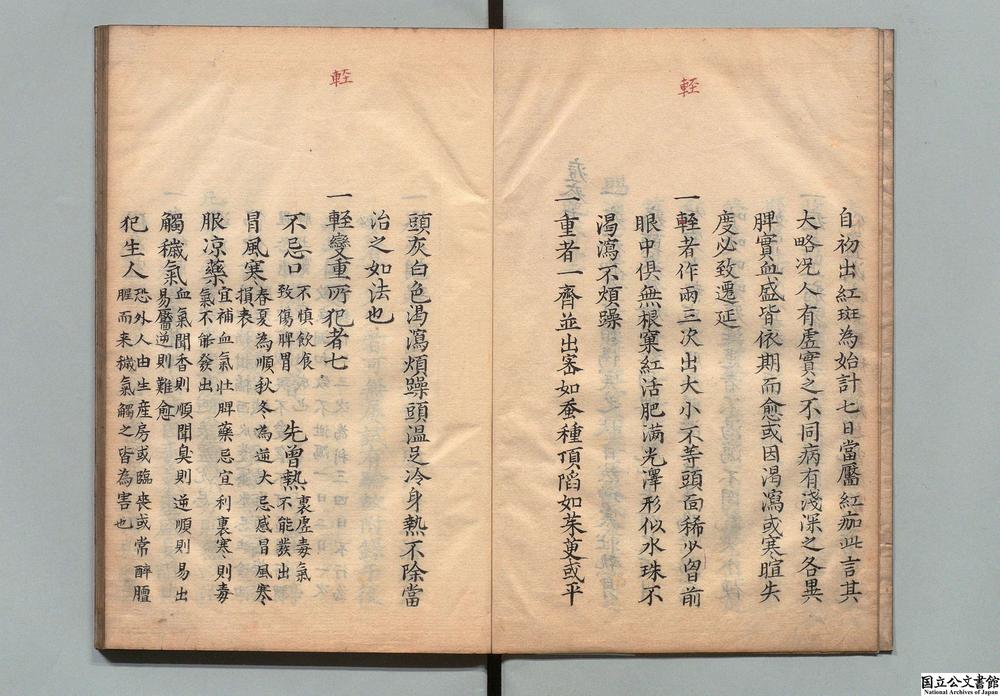 輕
自初出紅斑為始計七日當靨紅痂此言其
大略况人有虚實之不同病有淺深之各異
脾實血盛皆依期而愈或因渴瀉或寒暄失
度必致遷延
一輕者作兩三次出大小不等頭面稀少胷前
眼中俱無根窠紅活肥满光澤形似水珠不
渴瀉不煩躁
一重者一齊並出宻如蚕種頂䧟如茱萸或平
輕
頭灰白色渴瀉煩躁頭温足冷身熱不除當
治之如法也
一輕變重所犯者七
不忌口 不慎飲食致傷脾胃 先曾熱 裏虚毒氣不能發出
冒風寒 春夏為順秋冬為逆大忌感冒風寒損表
服凉藥 宜補血氣壮脾藥忌宜利裏寒則毒氣不能發出
觸穢氣 血氣聞香則順聞臭則逆順則易出易靨逆則難愈
犯生人 恐外人由生産房或臨喪或常醉膻腥而来穢氣觸之皆為害也
国立公文書館
National Archives of Japan